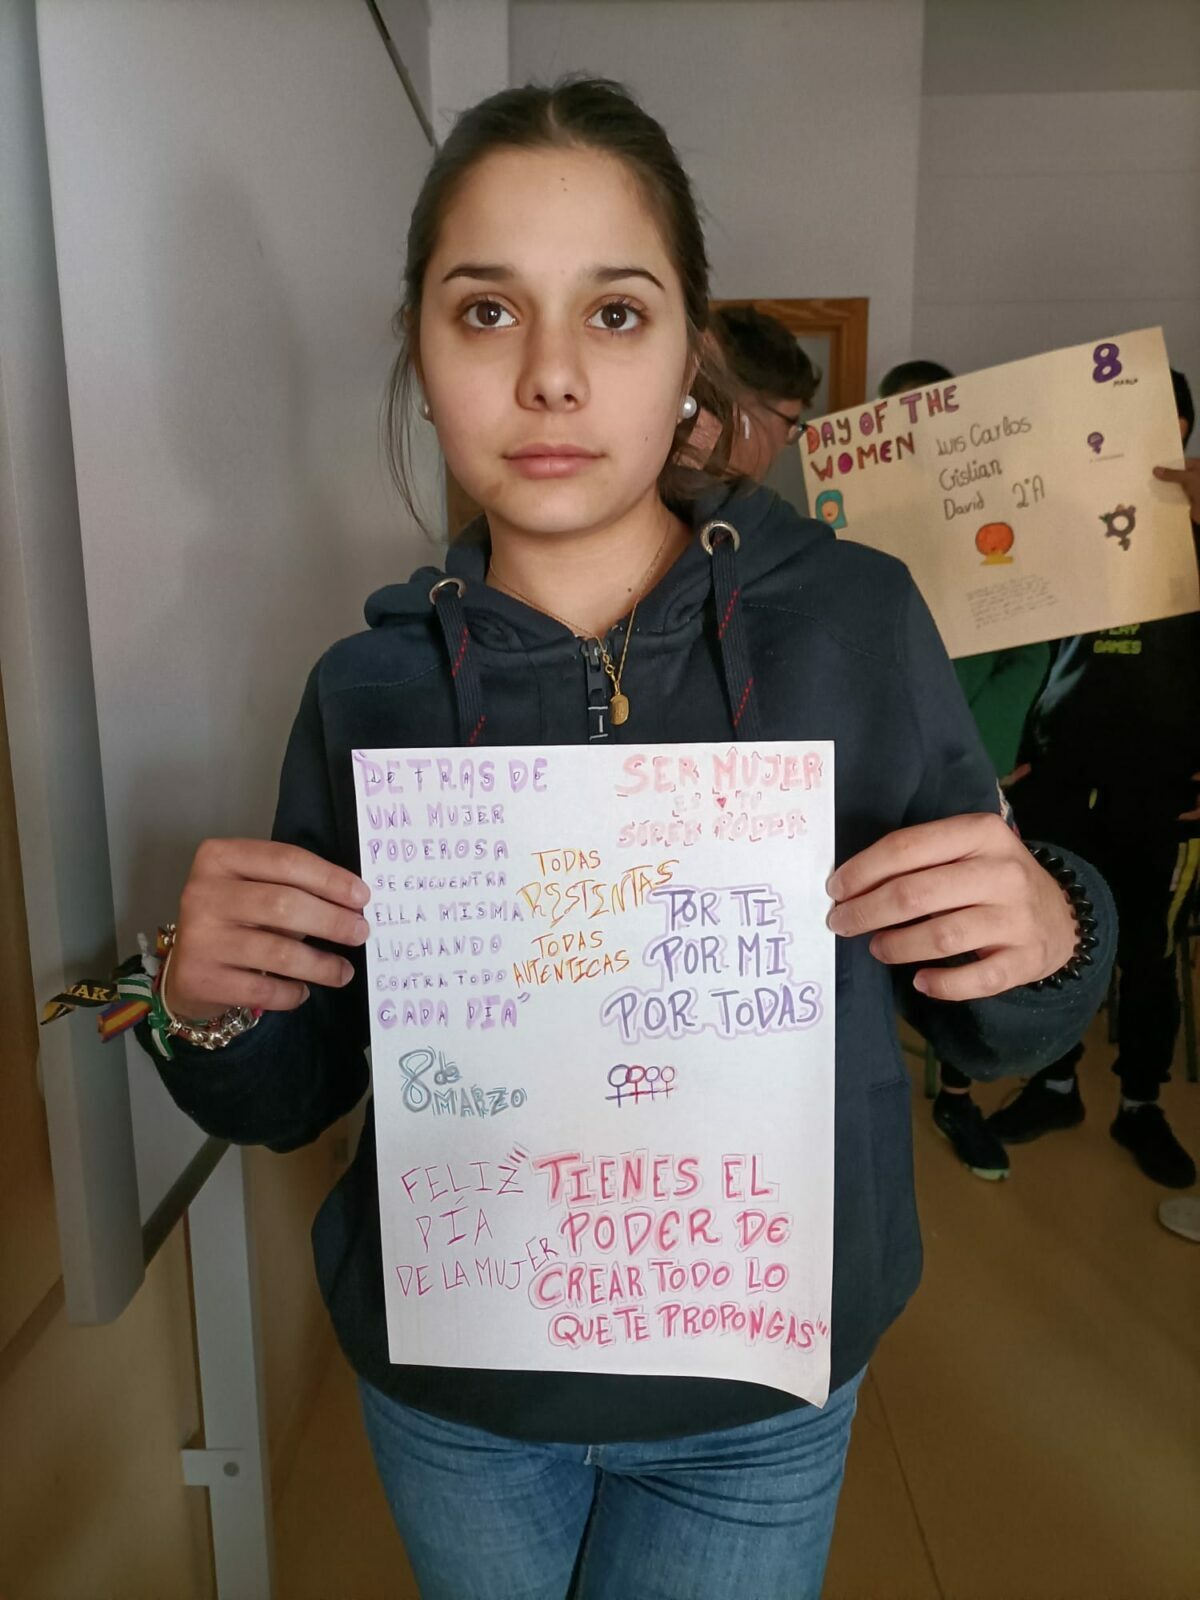 "DETRAS DE
UNA MUJER
PODEROSA
SE ENCUENTRA
ELLA MISMA
LUCHANDO
CONTRA TODO
CADA DÍA"
SER MUJER
ES TU
SÚPER PODER
TODAS
DISTINTAS
TODAS
AUTÉNTICAS
POR TI
POR MI
POR TODAS
8 de
MARZO
FELIZ
DÍA
DE LA MUJER
"TIENES EL
PODER DE
CREAR TODO LO
QUE TE PROPONGAS"
DAY OF THE
WOMEN
8
MARZO
Luis Carlos
Cristian
David 2ºA
PLAY
GAMES